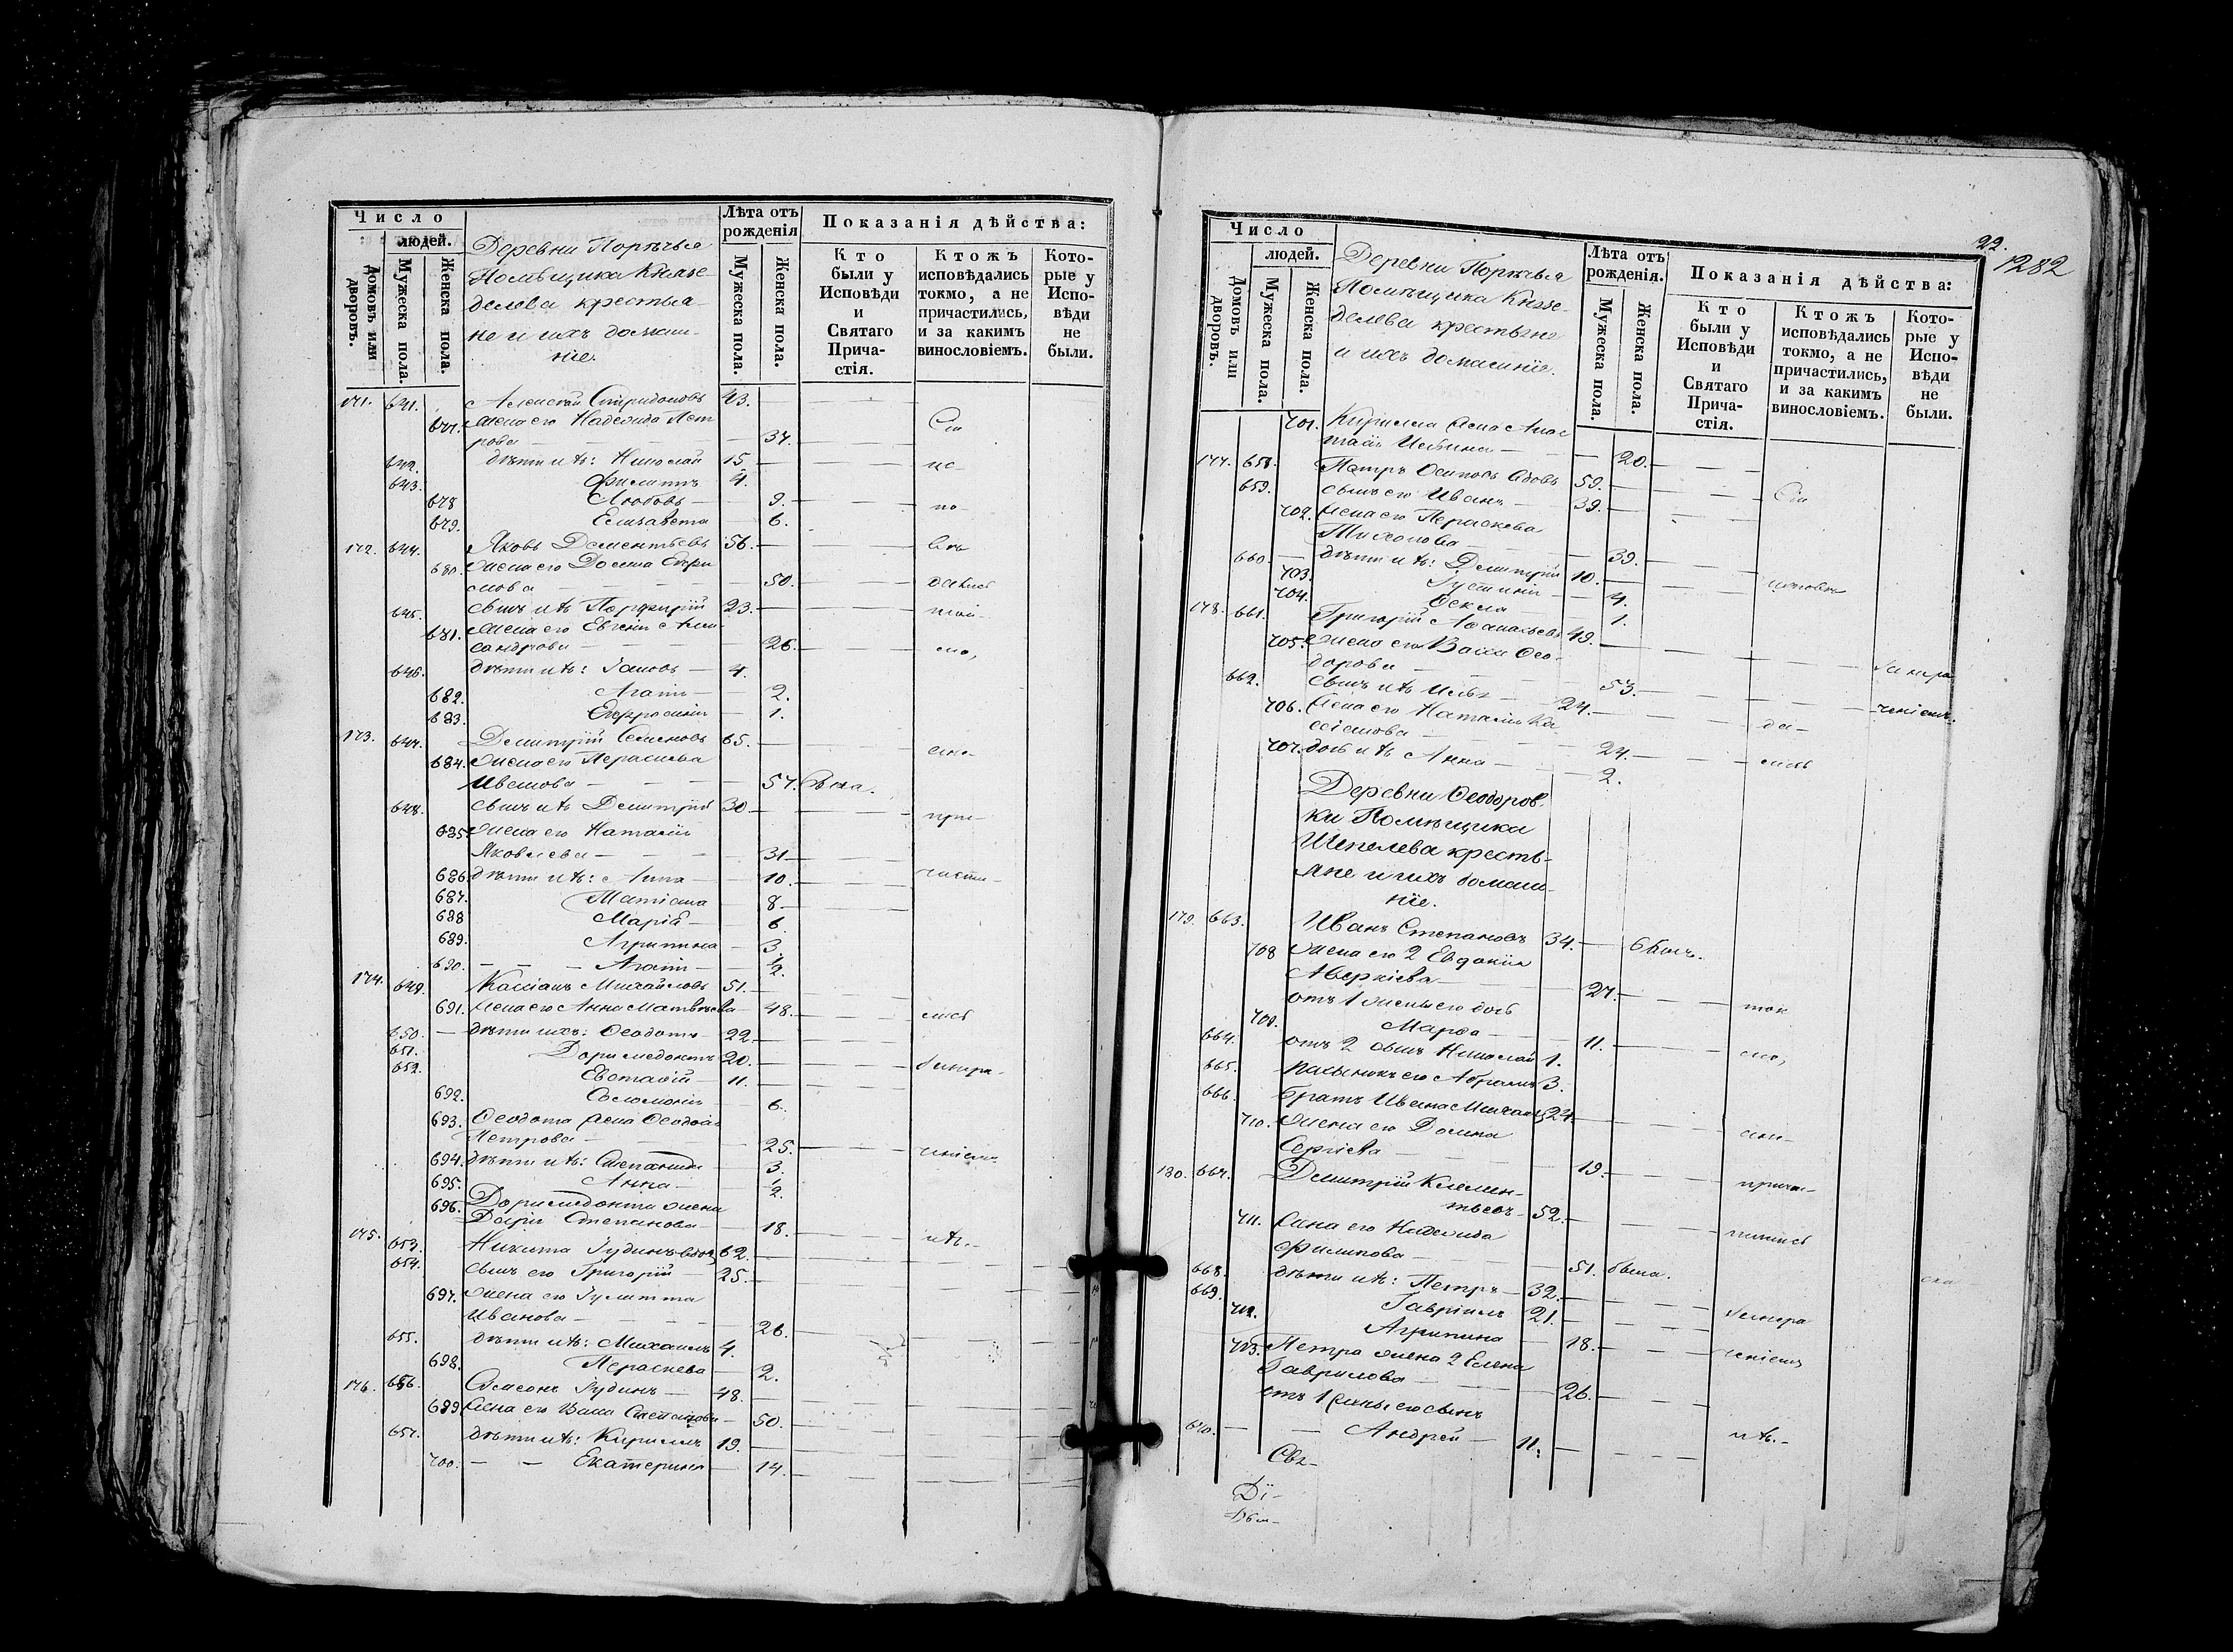 Число
людей.
Домовъ или дворовъ.
Мужеска пола.
Женска пола.
Деревни Порѣчья
Помѣщика Князе-
делева крестья-
не и ихъ домаш-
ніе.
Лѣта отъ рожденія
Мужеска пола.
Женска пола.
Показанія дѣйства:
Кто были у Исповѣди и Святаго Прича-стія.
Ктожъ исповѣдались токмо, а не причастились, и за какимъ винословіемъ.
Кото-рые у Испо-вѣди не были.
171. 641. Алексѣй Спиридоновъ 43.
677. жена его Надежда Пет
рова 37. Сіи
642. дѣти ихъ: Николай 15 ис
643. Филиппъ 4.
678 Любовь 9. по
679. Елизавета 6.
172. 644. Яковъ Дементьевъ 56. вѣ
680. жена его Домна Ефи
мова 50. дались
645. сынъ ихъ Порфирій 23. ток
681. жена его Евгенія Алек
сандрова 26. мо,
646. дѣти ихъ: Іаковъ 4.
682. Агафія 2.
683. Евфросинія 1.
173. 647. Димитрій Семеновъ 65. а не
684. жена его Параскева
Иванова 57. Была.
648. сынъ ихъ Димитрій 30 при-
685 жена его Наталія
Яковлева 31
686. дѣти ихъ: Анна 10. части-
687. Татіана 8
688 Марія 6.
689. Агрипина 3.
690. Агафія 1/2.
174. 649. Касіанъ Михайловъ 51.
691. жена его Анна Матвѣева 48. лись
650. дѣти ихъ: Ѳеодотъ 22.
651. Доримедонтъ 20.
652. Евстафій 11.
692. Соломонія 6.
693. Ѳеодота жена Ѳеодосія
Петрова 25. ченіемъ
694. дѣти ихъ: Степанида 3.
695. Анна 1/2.
696. Доримедонта жена
Дарія Степанова 18. ихъ.
175. 653. Никита Іудинъ вдов. 62.
654. сынъ его Григорій 25.
697. жена его Іулитта
Иванова 26.
655. дѣти ихъ: Михаилъ 4.
698. Параскева 2.
176. 656. Самсонъ Іудинъ 48.
699. жена его Васса Степанова 50.
657. дѣти ихъ: Кириллъ 19.
700. Екатерина 14.
22.
1282
Число
людей.
Домовъ или дворовъ.
Мужеска пола.
Женска пола.
Деревни Порѣчья
Помѣщика Князе-
делева крестьяне
и ихъ домашніе.
Лѣта отъ рожденія.
Мужеска пола.
Женска пола.
Показанія дѣйства:
Кто были у Исповѣди и Святаго Прича-стія.
Ктожъ исповѣдались токмо, а не причастились, и за какимъ винословіемъ.
Кото-рые у Испо-вѣди не были.
701. Кирилла жена Анас
тасія Ильина 20.
177. 658. Петръ Осиповъ вдовъ 59.
659. сынъ его Иванъ 39. Сіи
702. жена его Параскева
Тихонова 39.
660. дѣти ихъ: Димитрій 10.
703. Іустинія 4.
704. Ѳекла 1.
178. 661. Григорій Аѳанасьевъ 49.
705. жена его Васса Ѳео-
дорова 53.
662. сынъ ихъ Илья 24.
706. жена его Наталія Ка
сіянова 24. да-
707. дочь ихъ Анна 2. лись
Деревни Ѳеодоров-
ки Помѣщика
Шепелева кресть-
яне и ихъ домаш-
ніе.
179. 663. Иванъ Степановъ 34. былъ.
708 жена его 2 Евдокія
Аверкіева 27. ток
отъ 1 жены его дочь
709. Марѳа 11. мо,
664. отъ 2 сынъ Николай 1.
665. пасынокъ его Абрамъ 3.
666. братъ Ивана Михаилъ 24.
710. жена его Домна
Сергіева 19. а не
180. 667. Димитрій Клемен-
тьевъ 52. прича-
711. жена его Надежда
Филипова 51. была. стились
668. дѣти ихъ: Петръ 32.
669. Гавріилъ 21.
712. Агрипина 18.
713. Петра жена 2 Елена
Гаврилова 26. ченіемъ
отъ 1 жены его сынъ
670. Андрей 11. ихъ.
Свя-
Ді-